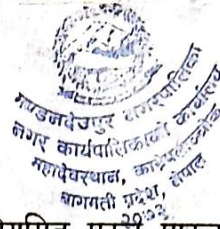 मण्डनदेउपुर नगरपालिका
नगर कार्यपालिकाको कार्यालय
महादेवस्थान, काभ्रेपलाञ्चोक
बागमती प्रदेश, नेपाल
२०७३